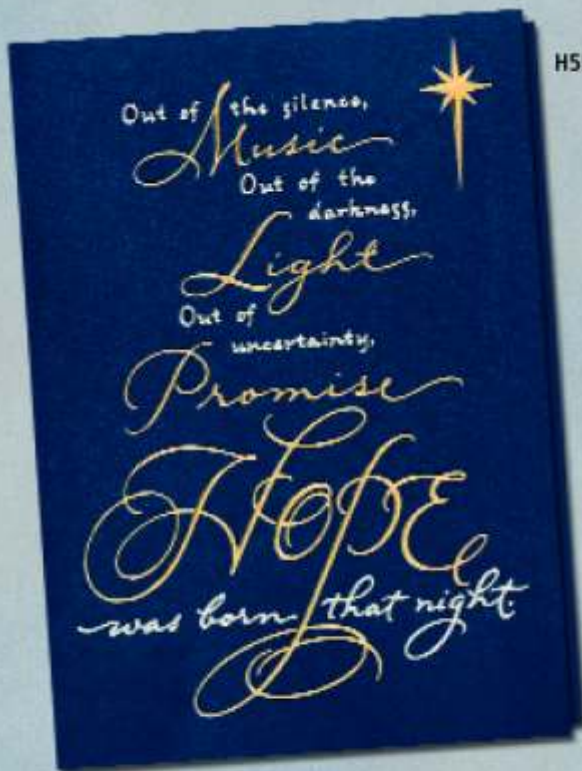 H5
Out of the silence,
Music
Out of the
darkness,
Light
Out of
uncertainty,
Promise
HOPE
was born that night.